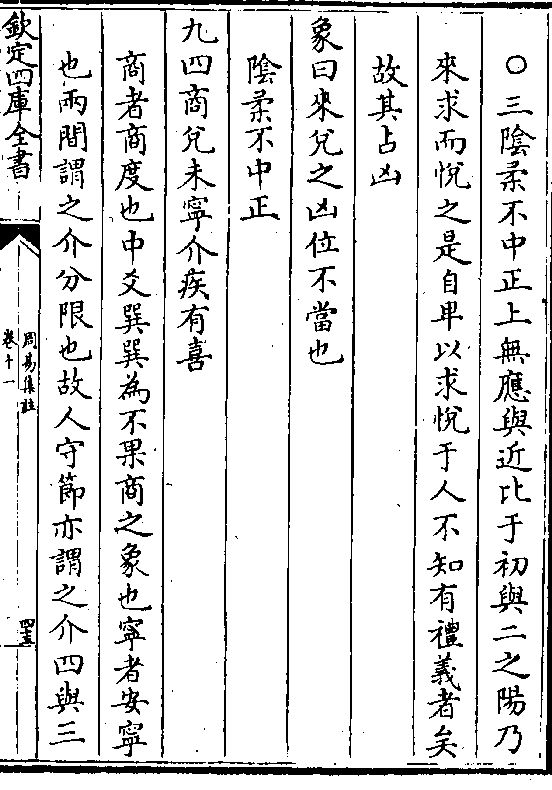 ○三陰柔不中正上無應與近比于初與二之陽乃
來求而悅之是自卑以求悅于人不知有禮義者矣
故其占凶
象曰來兌之凶位不當也
陰柔不中正
九四商兌未寧介疾有喜
商者商度也中爻巽巽為不果商之象也寧者安寧
也兩間謂之介分限也故人守節亦謂之介四與三
欽定四庫全書
周易集註
卷十一
四十五